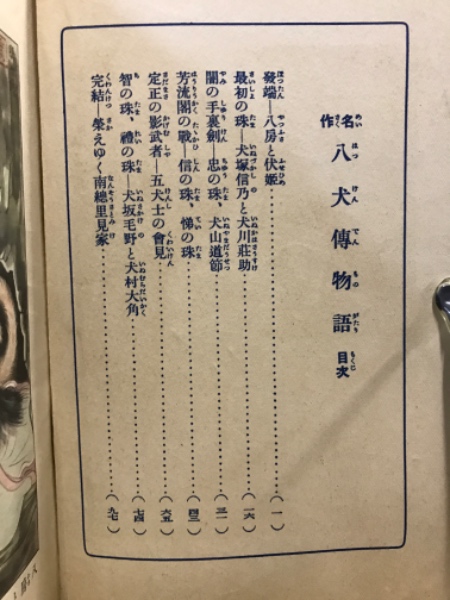 名作 八犬傳物語 目次
發端―八房と伏姫……(一)
最初の珠―犬塚信乃と犬川莊助……(一六)
闇の手裏劍、忠の珠、犬山道節……(三一)
芳流閣の戰、信の珠、悌の珠……(四三)
定正の影武者―五犬士の會見……(六五)
智の珠、禮の珠―犬坂毛野と犬村大角……(七四)
完結―榮えゆく南總里見家……(九七)